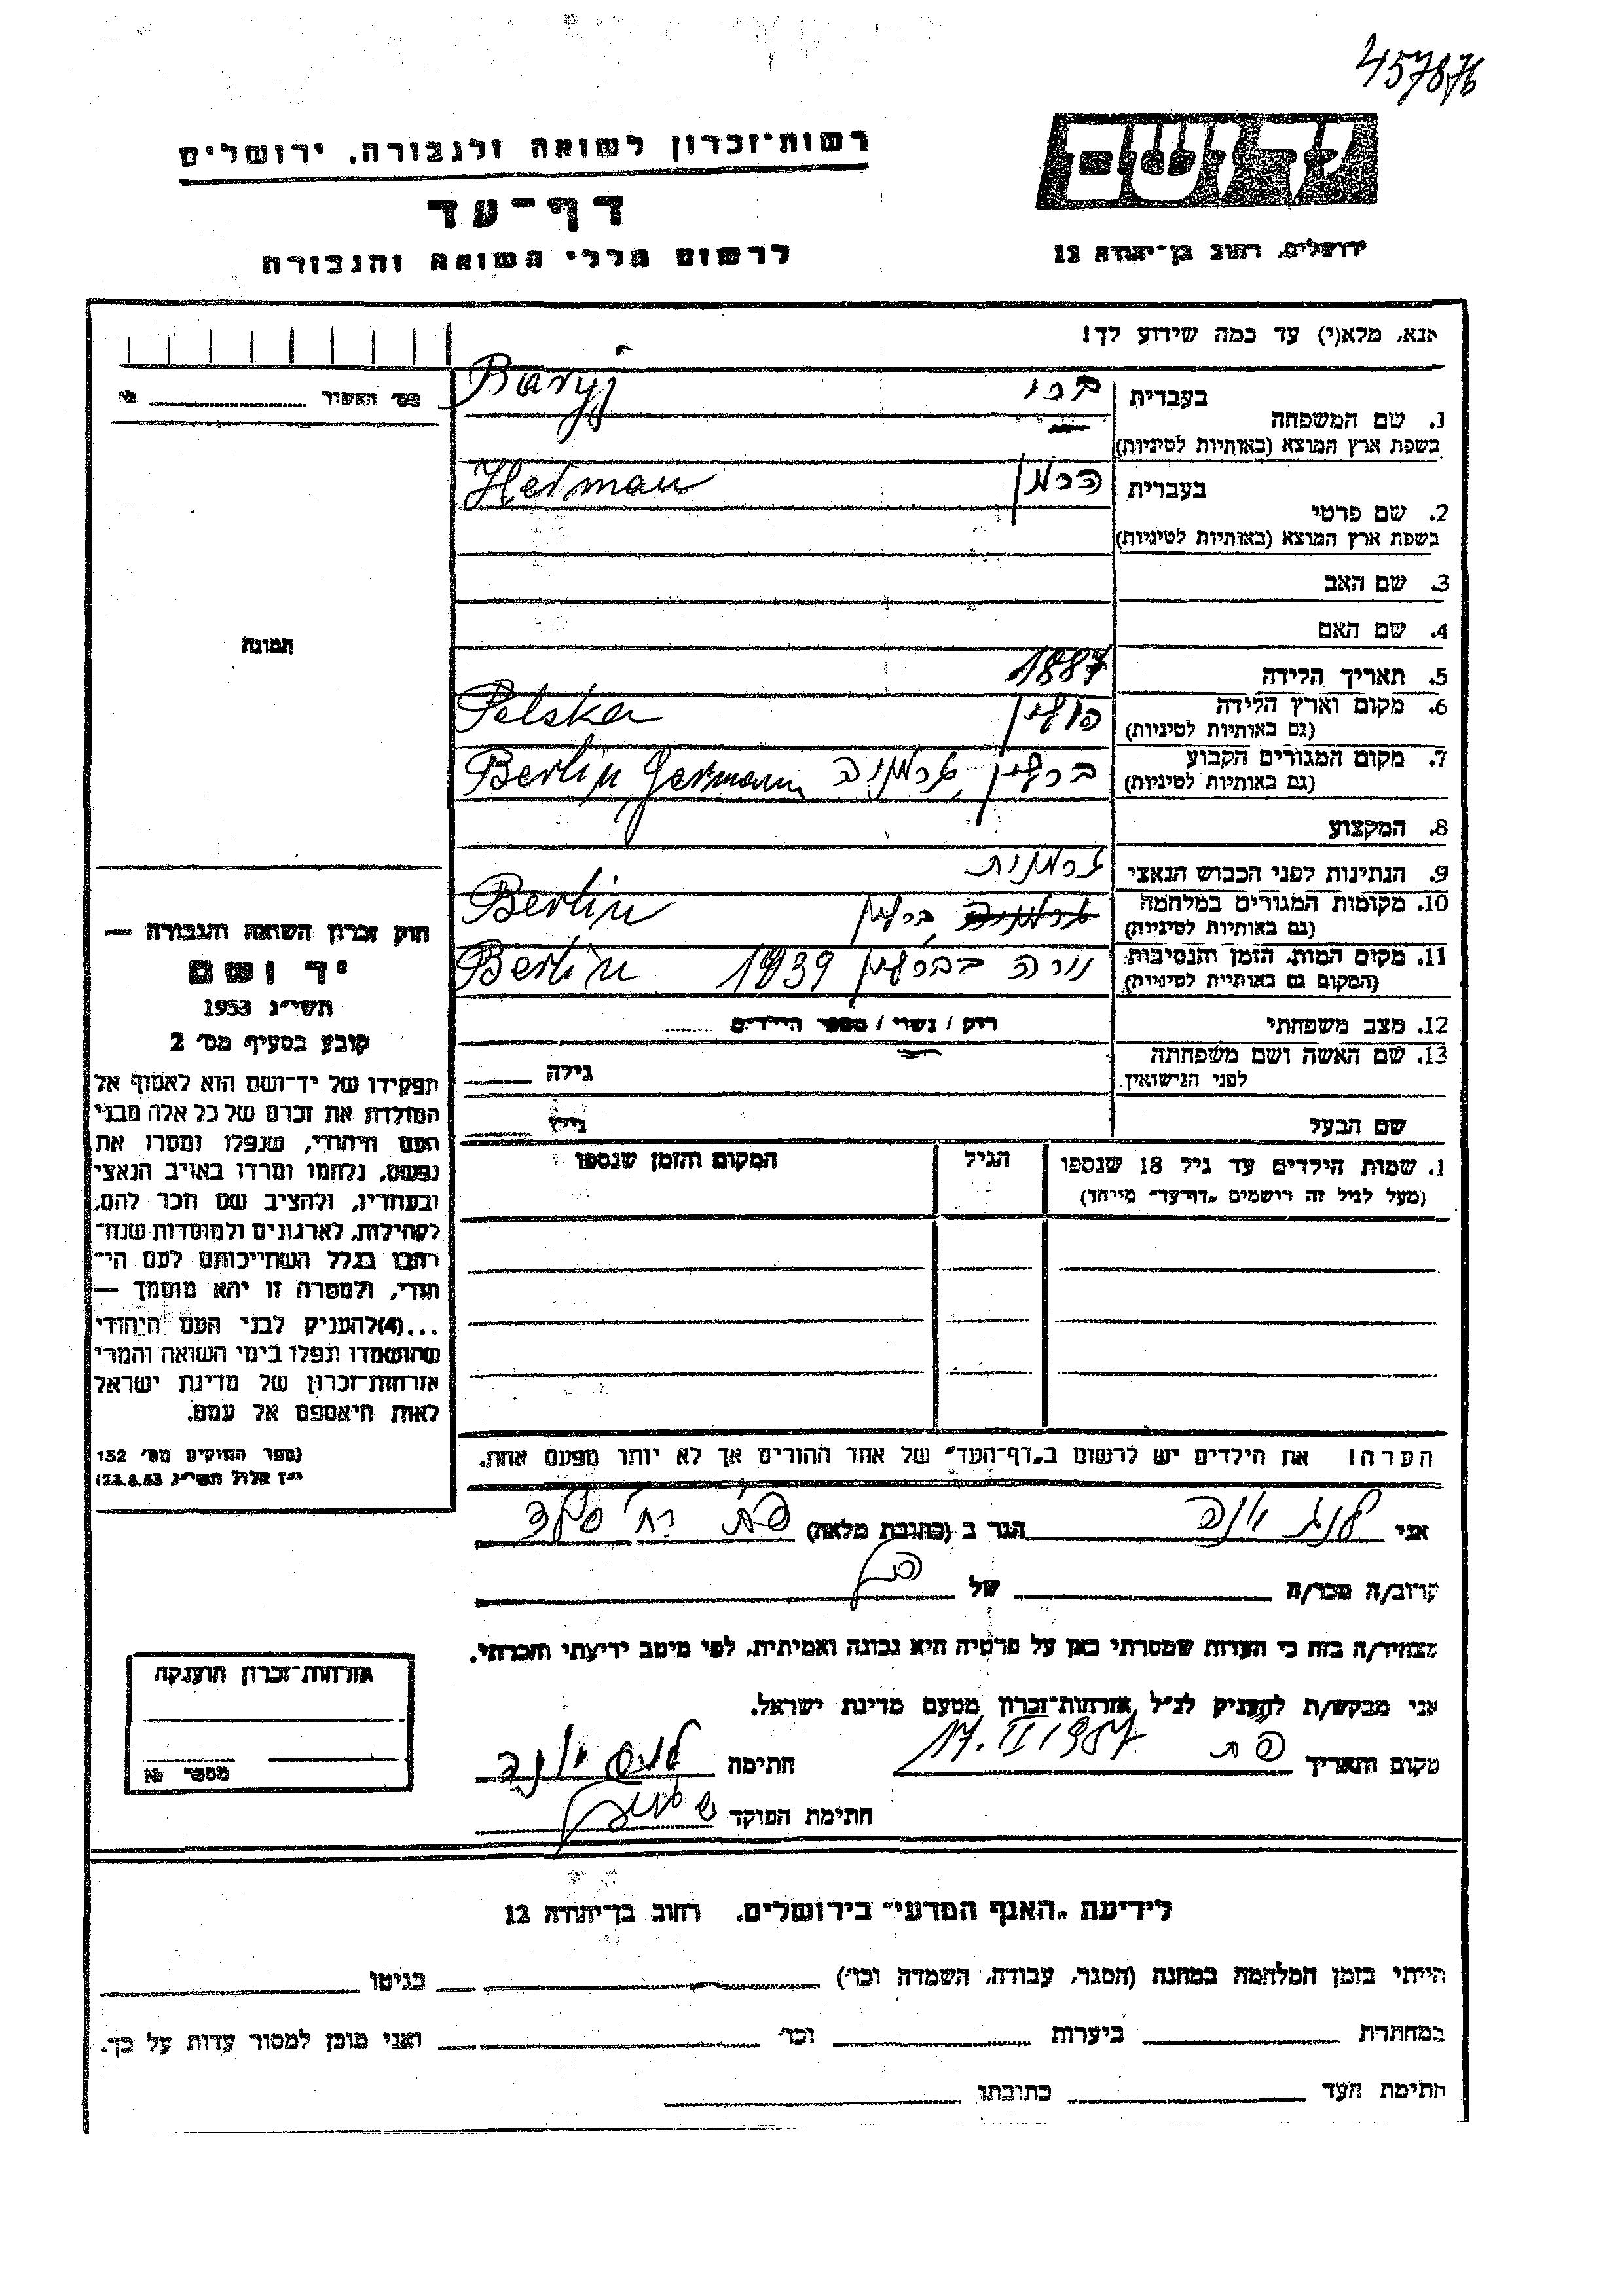 457876
רשות־זכרון לשואה ולגבורה, ירושלים
יד ושם
דף־עד
לרשום חללי השואה והגבורה
ירושלים, רחוב בן־יהודה 12
אנא, מלא(י) עד כמה שידוע לך!
מס׳ האשור № 
1. שם המשפחה בעברית ברי Baryj
בשפת ארץ המוצא (באותיות לטיניות)
2. שם פרטי בעברית הרמן Herman
בשפת ארץ המוצא (באותיות לטיניות)
3. שם האב
4. שם האם
תמונה
5. תאריך הלידה 1887
6. מקום וארץ הלידה פולין Polska
(גם באותיות לטיניות)
7. מקום המגורים הקבוע ברלין, גרמניה Berlin, Germann
(גם באותיות לטיניות)
8. המקצוע
9. הנתינות לפני הכבוש הנאצי גרמנית
10. מקומות המגורים במלחמה ברלין Berlin
(גם באותיות לטיניות)
11. מקום המות, הזמן והנסיבות נורה בברלין 1939 Berlin
(המקום גם באותיות לטיניות)
12. מצב משפחתי רוק / נשוי / מספר הילדים
13. שם האשה ושם משפחתה גילה
לפני הנישואין
שם הבעל גילו
חוק זכרון השואה והגבורה —
יד ושם
תשי״ג 1953
קובע בסעיף מס׳ 2
תפקידו של יד־ושם הוא לאסוף אל
המולדת את זכרם של כל אלה מבני
העם היהודי, שנפלו ומסרו את
נפשם, נלחמו ומרדו באויב הנאצי
ובעוזריו, ולהציב שם וזכר להם,
לקהילות, לארגונים ולמוסדות שנח־
רבו בגלל השתייכותם לעם הי־
הודי, ולמטרה זו יהא מוסמך —
...(4) להעניק לבני העם היהודי
שהושמדו ונפלו בימי השואה והמרי
אזרחות־זכרון של מדינת ישראל
לאות היאספם אל עמם.
(ספר החוקים מס׳ 132
י״ז אלול תשי״ג 28.8.53)
1. שמות הילדים עד גיל 18 שנספו הגיל המקום והזמן שנספו
(מעל לגיל זה רושמים „דף־עד״ מיוחד)
הערה! את הילדים יש לרשום ב„דף־העד״ של אחד ההורים אך לא יותר מפעם אחת.
אני לנג יונה הגר ב (כתובת מלאה) פ״ת רח׳
קרוב/ה מכר/ה של
מצהיר/ה בזה כי העדות שמסרתי כאן על פרטיה היא נכונה ואמיתית, לפי מיטב ידיעתי והכרתי.
אני מבקש/ת להעניק לנ״ל אזרחות־זכרון מטעם מדינת ישראל.
מקום ותאריך פ״ת 17.II 1957 חתימה יונה
חתימת הפוקד
אזרחות־זכרון הוענקה
מספר №
לידיעת „האגף המדעי״ בירושלים, רחוב בן־יהודה 12
הייתי בזמן המלחמה במחנה (הסגר, עבודה, השמדה וכו׳) בגיטו
במחתרת ביערות וכו׳ ואני מוכן למסור עדות על כך.
חתימת העד כתובתו